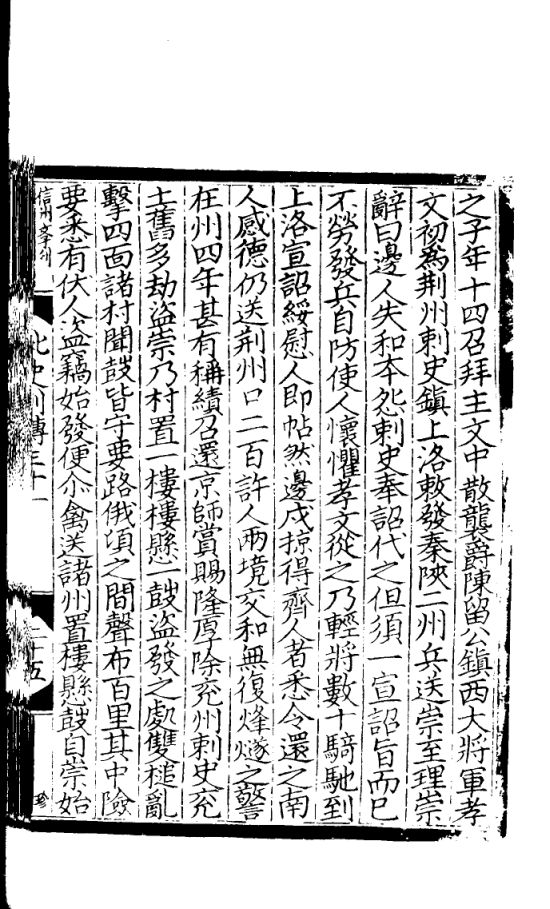 之子年十四召拜主文中散襲爵陳留公鎮西大將軍孝
文初爲荆州刺史鎮上洛敕發秦陝二州兵送崇至理崇
辭曰邊人失和本怨刺史奉詔代之但須一宣詔旨而已
不勞發兵自防使人懷懼孝文從之乃輕將數十騎馳到
上洛宣詔綏慰人即帖然邊戍掠得齊人者悉令還之南
人感德仍送荆州口二百許人兩境交和無復烽燧之警
在州四年甚有稱績召還京師賞賜隆厚除兖州刺史兖
土舊多劫盜崇乃村置一樓樓懸一鼓盜發之處雙槌亂
擊四面諸村聞鼓皆守要路俄頃之間聲布百里其中險
要悉有伏人盜竊始發便尒禽送諸州置樓懸鼓自崇始
信州
北史列傳三十一
二十五
珍